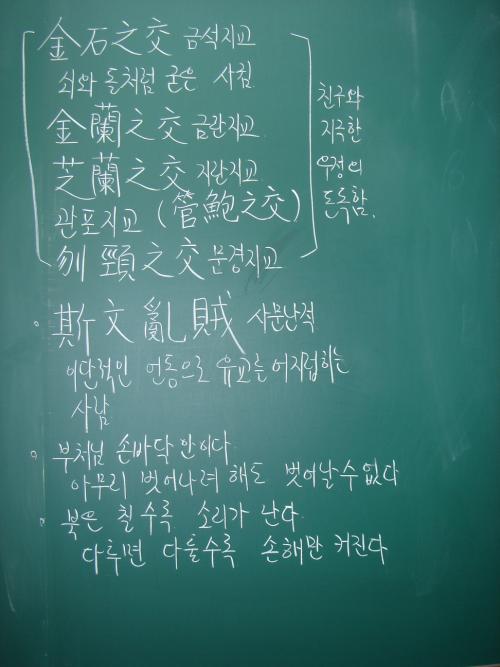 金石之交 금석지교
쇠와 돌처럼 굳은 사귐
金蘭之交 금란지교
芝蘭之交 지란지교
관포지교 (管鮑之交)
刎頸之交 문경지교
친구와
지극한
우정의
돈독함.
斯文亂賊 사문난적
이단적인 언동으로 유교를 어지럽히는
사람
부처님 손바닥 안이다.
아무리 벗어나려 해도 벗어날 수 없다
북은 칠수록 소리가 난다.
다투면 다툴수록 손해만 커진다